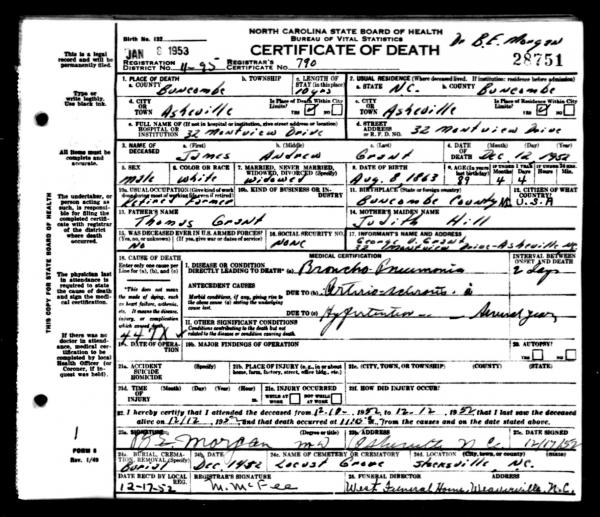 NORTH CAROLINA STATE BOARD OF HEALTH
BUREAU OF VITAL STATISTICS
CERTIFICATE OF DEATH
Dr B.E. Morgan
28751
Birth No. 132
JAN 8 1953
REGISTRATION DISTRICT No. 11-95
REGISTRAR'S CERTIFICATE No. 790
This is a legal record and will be permanently filed.
Type or write legibly. Use black ink.
All items must be complete and accurate.
The undertaker, or person acting as such, is responsible for filing the completed certificate with registrar of the district where death occurred.
The physician last in attendance is required to state the cause of death and sign the medical certification.
If there was no doctor in attendance, medical certification to be completed by local Health Officer (or Coroner, if inquest was held).
THIS COPY FOR STATE BOARD OF HEALTH
1
FORM 8
Rev. 1/49
1. PLACE OF DEATH
a. COUNTY Buncombe
b. TOWNSHIP
c. LENGTH OF STAY (in this place) 10 yrs
2. USUAL RESIDENCE (Where deceased lived. If institution: residence before admission)
a. STATE N.C. b. COUNTY Buncombe
d. CITY OR TOWN Asheville
Is Place of Death Within City Limits? YES NO
c. CITY OR TOWN Asheville
Is Place of Residence Within City Limits? YES NO
e. FULL NAME OF (If not in hospital or institution, give street address or location) HOSPITAL OR INSTITUTION 32 Montview Drive
d. STREET ADDRESS OR R. F. D. NO. 32 Montview Drive
3. NAME OF DECEASED
a. (First) James
b. (Middle) Andrew
c. (Last) Grant
4. DATE OF DEATH (Month) (Day) (Year) Dec 12 1952
5. SEX Male
6. COLOR OR RACE White
7. MARRIED, NEVER MARRIED, WIDOWED, DIVORCED (Specify) Widowed
8. DATE OF BIRTH Aug 8 1863
9. AGE last birthday 89 Months 4 Days 4
10a. USUAL OCCUPATION (Give kind of work done during most of working life, even if retired) Retired Farmer
10b. KIND OF BUSINESS OR INDUSTRY
11. BIRTHPLACE (State or foreign country) Buncombe County NC
12. CITIZEN OF WHAT COUNTRY? U.S.A
13. FATHER'S NAME Thomas Grant
14. MOTHER'S MAIDEN NAME Judith Hill
15. WAS DECEASED EVER IN U.S. ARMED FORCES? (Yes, no, or unknown) (If yes, give war or dates of service) No
16. SOCIAL SECURITY NO. None
17. INFORMANT'S NAME AND ADDRESS George Grant
32 Montview Drive-Asheville NC
MEDICAL CERTIFICATION
INTERVAL BETWEEN ONSET AND DEATH
18. CAUSE OF DEATH
Enter only one cause per line for (a), (b), and (c)
*This does not mean the mode of dying, such as heart failure, asthenia, etc. It means the disease, injury, or complication which caused death.
447X
I. DISEASE OR CONDITION DIRECTLY LEADING TO DEATH* (a) Broncho Pneumonia 2 days
ANTECEDENT CAUSES
Morbid conditions, if any, giving rise to the above cause (a) stating the underlying cause last.
DUE TO (b)
DUE TO (c) Hypertention Several years
II. OTHER SIGNIFICANT CONDITIONS
Conditions contributing to the death but not related to the disease or condition causing death.
19a. DATE OF OPERATION
19b. MAJOR FINDINGS OF OPERATION
20. AUTOPSY? YES NO
21a. ACCIDENT SUICIDE HOMICIDE (Specify)
21b. PLACE OF INJURY (e.g., in or about home, farm, factory, street, office bldg., etc.)
21c. (CITY, TOWN, OR TOWNSHIP) (COUNTY) (STATE)
21d. TIME OF INJURY (Month) (Day) (Year) (Hour)
21e. INJURY OCCURRED WHILE AT WORK NOT WHILE AT WORK
21f. HOW DID INJURY OCCUR?
22. I hereby certify that I attended the deceased from 12-10-, 1952 to 12-12, 1952 that I last saw the deceased
alive on 12/12, 1952 and that death occurred at m., from the causes and on the date stated above.
23a. SIGNATURE BE Morgan (Degree or title) MD
23b. ADDRESS Asheville N C
23c. DATE SIGNED 12/17/52
24a. BURIAL, CREMATION, REMOVAL (Specify) Burial
24b. DATE Dec 1952
24c. NAME OF CEMETERY OR CREMATORY Locust Grove
24d. LOCATION (City, town, or county) (State) Stocksville, NC.
DATE REC'D BY LOCAL REG. 12-17-52
REGISTRAR'S SIGNATURE M. McFee
25. FUNERAL DIRECTOR ADDRESS West Funeral Home, Weaverville, N.C.